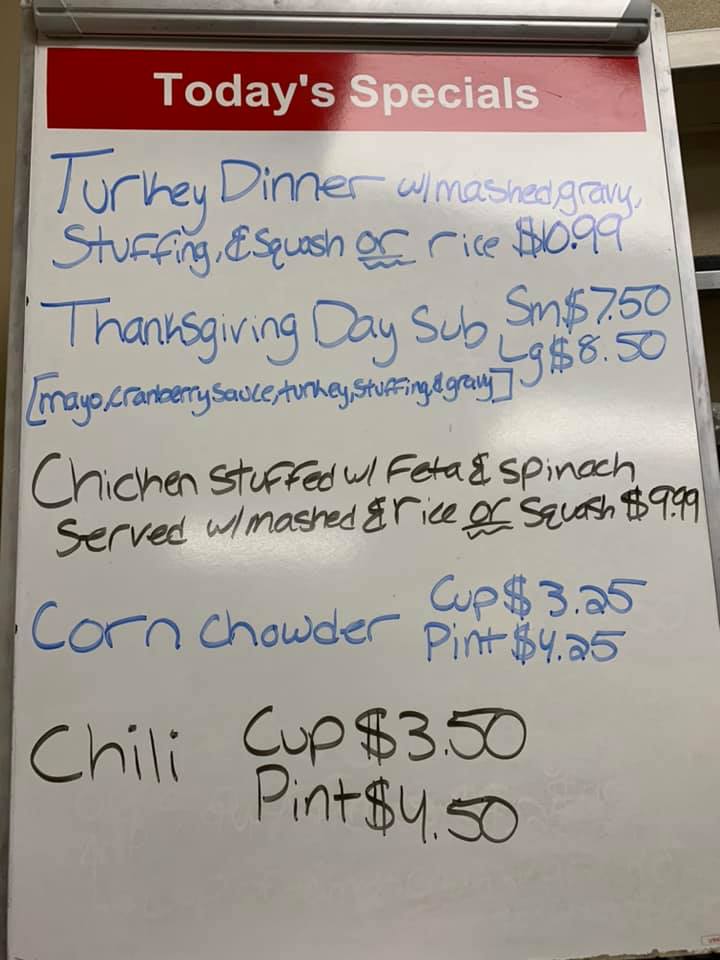 Today's Specials
Turkey Dinner w/mashed,gravy,
Stuffing, & Squash or rice $10.99
Thanksgiving Day Sub Sm$7.50
Lg$8.50
[mayo,cranberry sauce,turkey,stuffing,&gravy]
Chicken stuffed w/ Feta & spinach
Served w/mashed & rice or Squash $9.99
Corn chowder Cup $3.25
Pint $4.25
Chili Cup $3.50
Pint $4.50